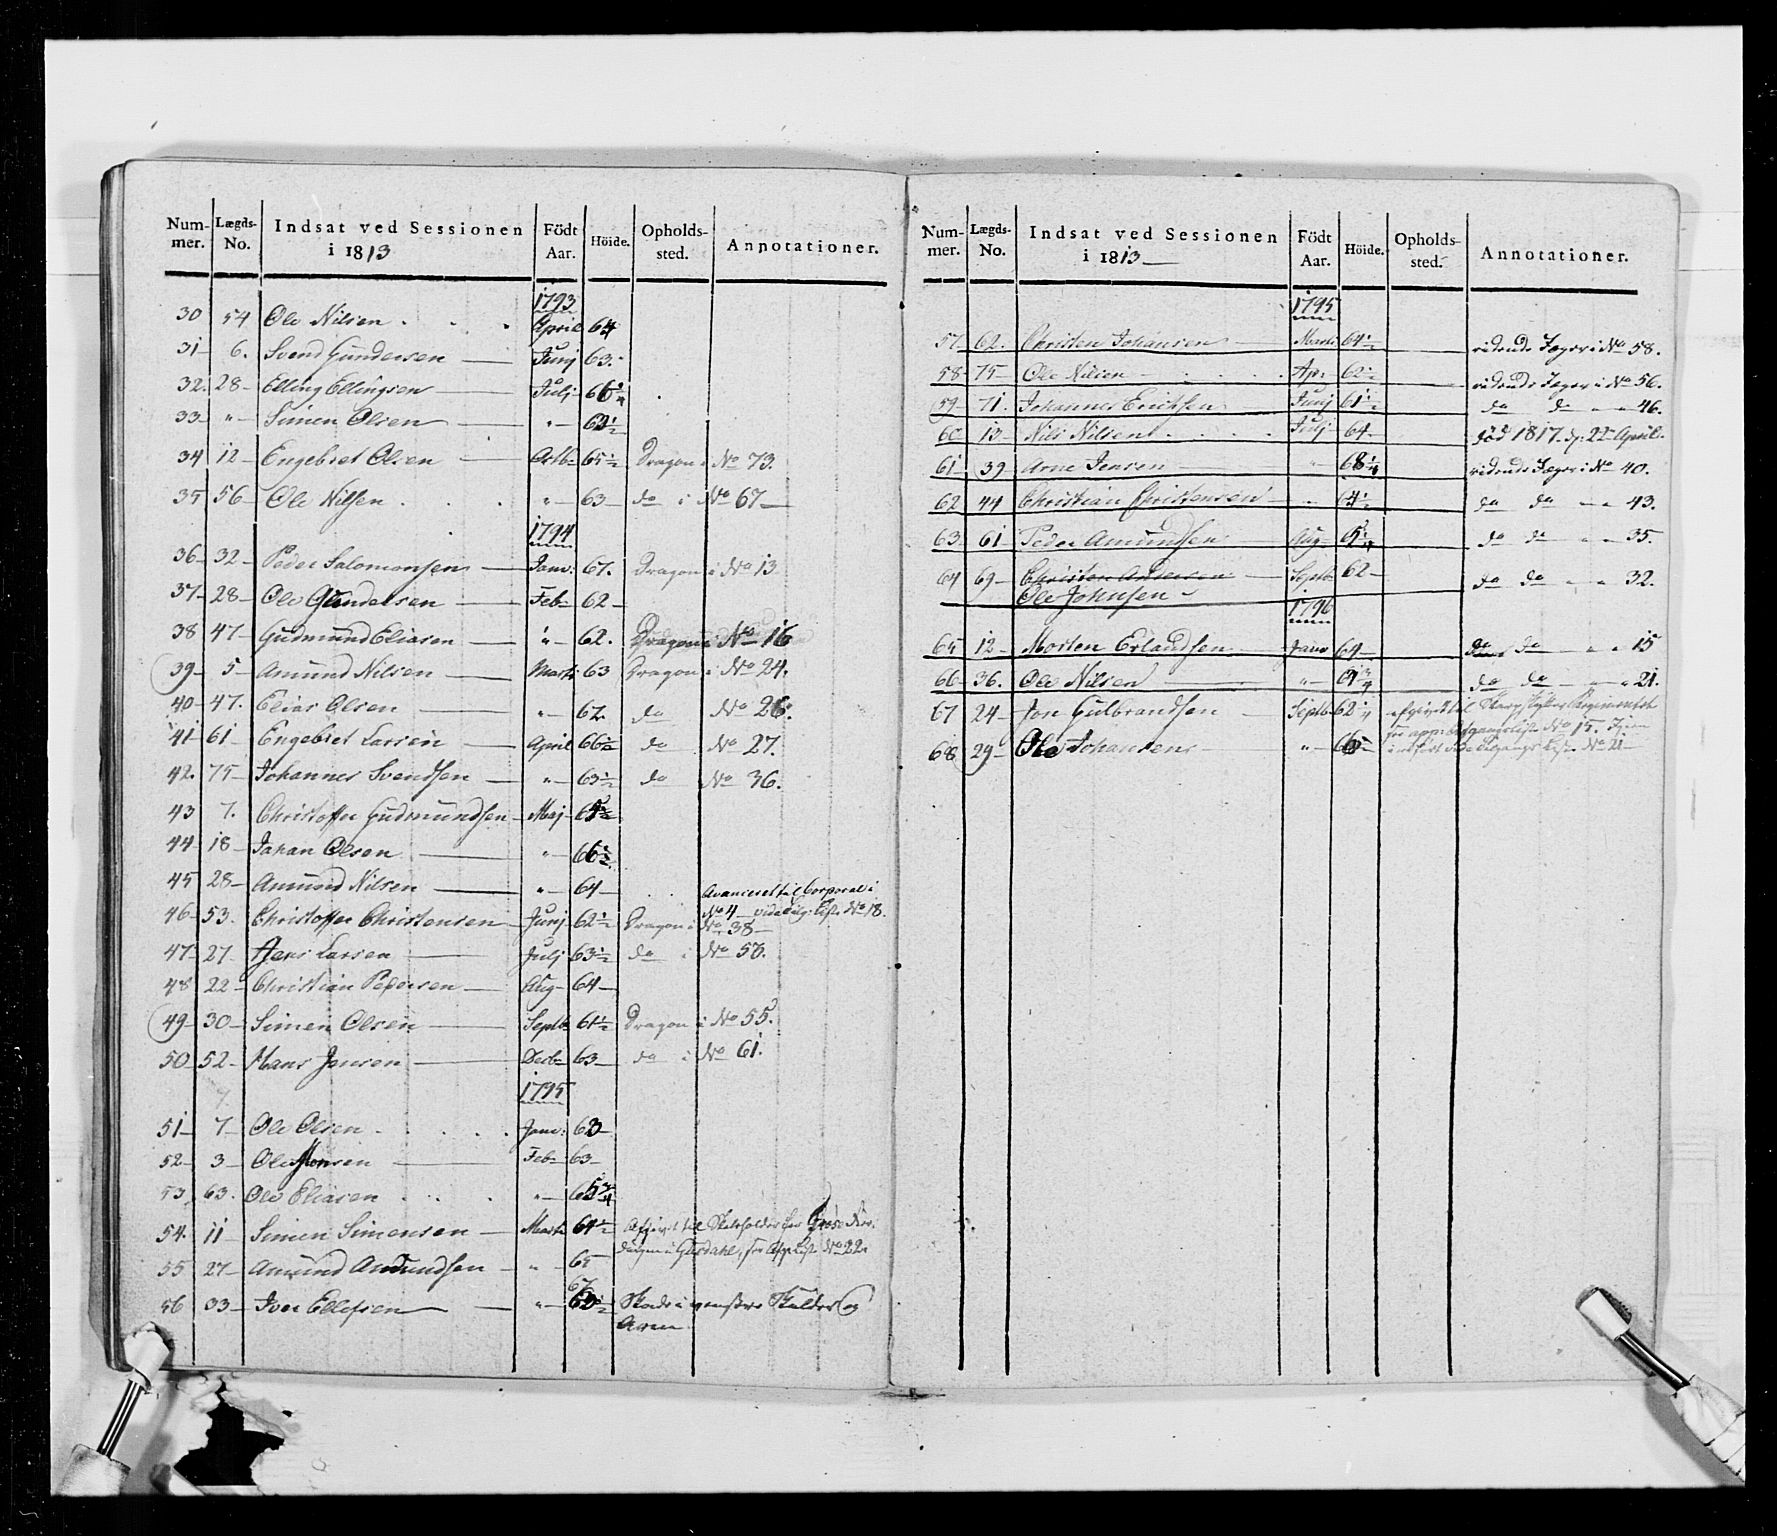 Num- Lægds- Indsat ved Sessionen Födt Höide. Opholds- Annotationer.
mer. No. i 1813 Aar. sted.
1793
30 54 Ole Nilsen April 64
31 6. Svend Gundersen Junj 63.
32. 28 Elling Ellingsen Julj 66 1/4
33 " Simen Olsen " 62 1/2
34 12 Engebret Olsen Octb 65 1/2 Dragon i No 73.
35 56 Ole Nilsen " 63 do i No 67
1794
36 32 Peder Salomonsen Janv: 67. Dragon i No 13
37 28 Ole Gundersen Feb 62
38 47 Gudmund Eliasen " 62. Dragon i No 16
39 5 Amund Nilsen Marti 63 Dragon i No 24.
40 47. Elias Olsen " 62. do No 26.
41 61 Engebret Larsen April 66 1/2 do No 27.
42. 75 Johannes Svendsen " 63 1/2 do No 36.
43 7. Christoffer Gudmundsen Maj
44 18 Johan Olsen " 66 1/2
45 28 Amund Nilsen " 64
Avanceret til Corporal i
46 53. Christoffer Christensen Junj 62 1/2 Dragon i No 38
No 4 vide Liste No 18.
47 27 Jens Larsen Julj 63 1/2 do i No 50.
48 22 Christian Pedersen Aug 64
49 30 Simen Olsen Septb 61 1/2 Dragon i No 55.
50 52 Hans Jensen Decb 63 do i No 61.
1795
51 7 Ole Olsen Janv: 63
52 3 Ole Monsen Feb 63
53 63. Ole Eliasen " 65 3/4
54. 11 Simen Simensen Marti 64 1/2 Afgivet til
No 22
55 27 Amund Amundsen " 65
56 33 Iver Ellefsen " 67 Skade i venstre Skulder og
Arm
Num- Lægds- Indsat ved Sessionen Födt Höide. Opholds- Annotationer.
mer. No. i 1813 Aar. sted.
1795
57 62. Christen Johansen Marti 64 1/2 ridende Jæger i No 58.
58 75 Ole Nilsen Apr: 62 1/2 ridende Jæger i No 56.
59 71. Johannes Erichsen Junj 61 1/2 do do " " 46.
60 13 Nils Nilsen Julj 64. død 1817. d. 22 April.
61 39 Arne Jensen " 68 1/4 ridende Jæger i No 40.
62 44 Christian Christensen " do do " " 43.
63 61 Peder Amundsen Aug do do " " 35.
64 69 Christen Andersen Septb 62 do do " " 32.
Ole Johnsen
1796
65 12 Morten Erlandsen Janv 64 do do " " 15
66 36. Ole Nilsen " 61 3/4 do do " " 21.
67 24 Jon Gulbrandsen Septb 62 1/4 afgivet til Skarpskytter Regimentet
Afgangsliste No 15.
68 29 Ole Johansen " 65 Liste No 21